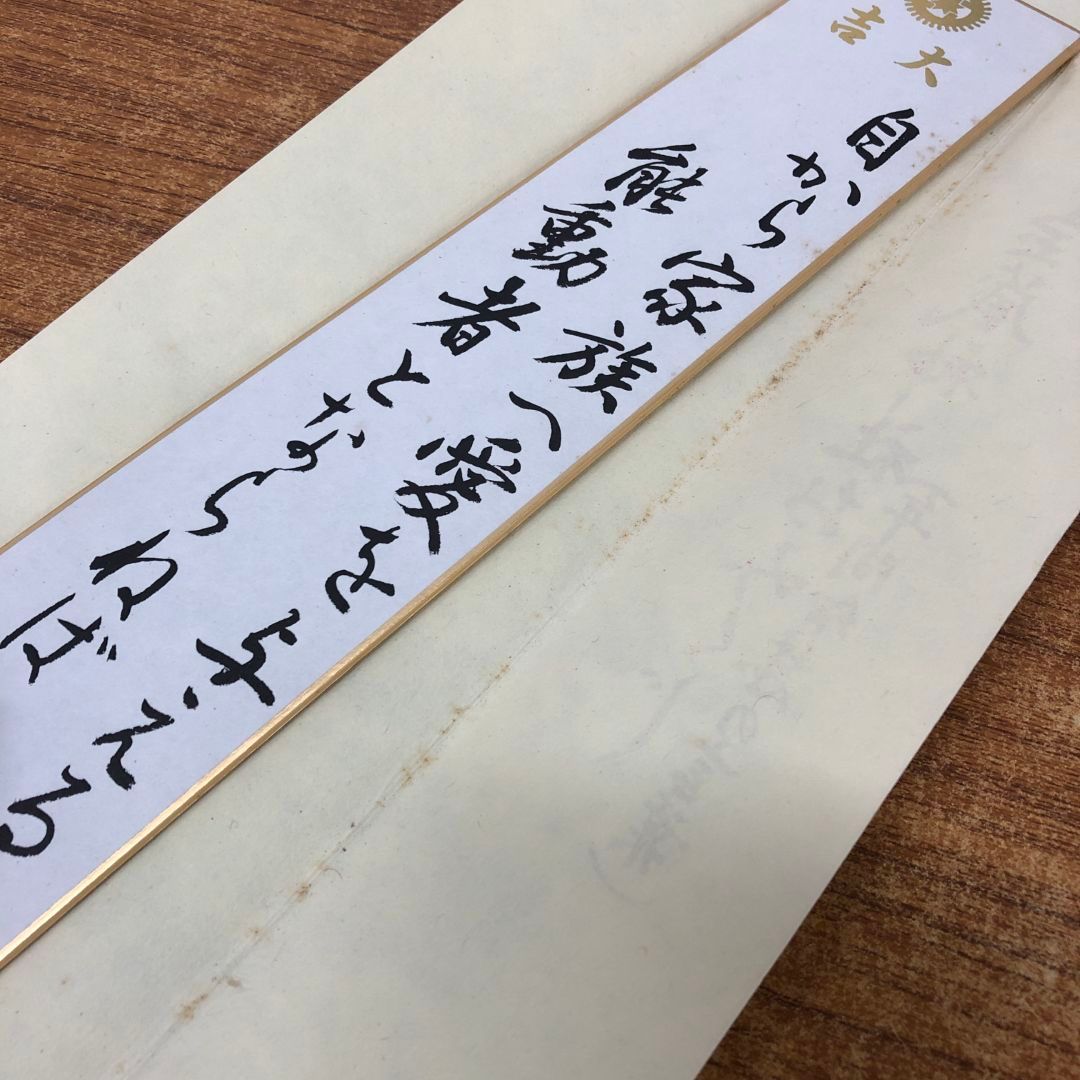 大吉
自から家族へ愛を与える
能動者とならねば